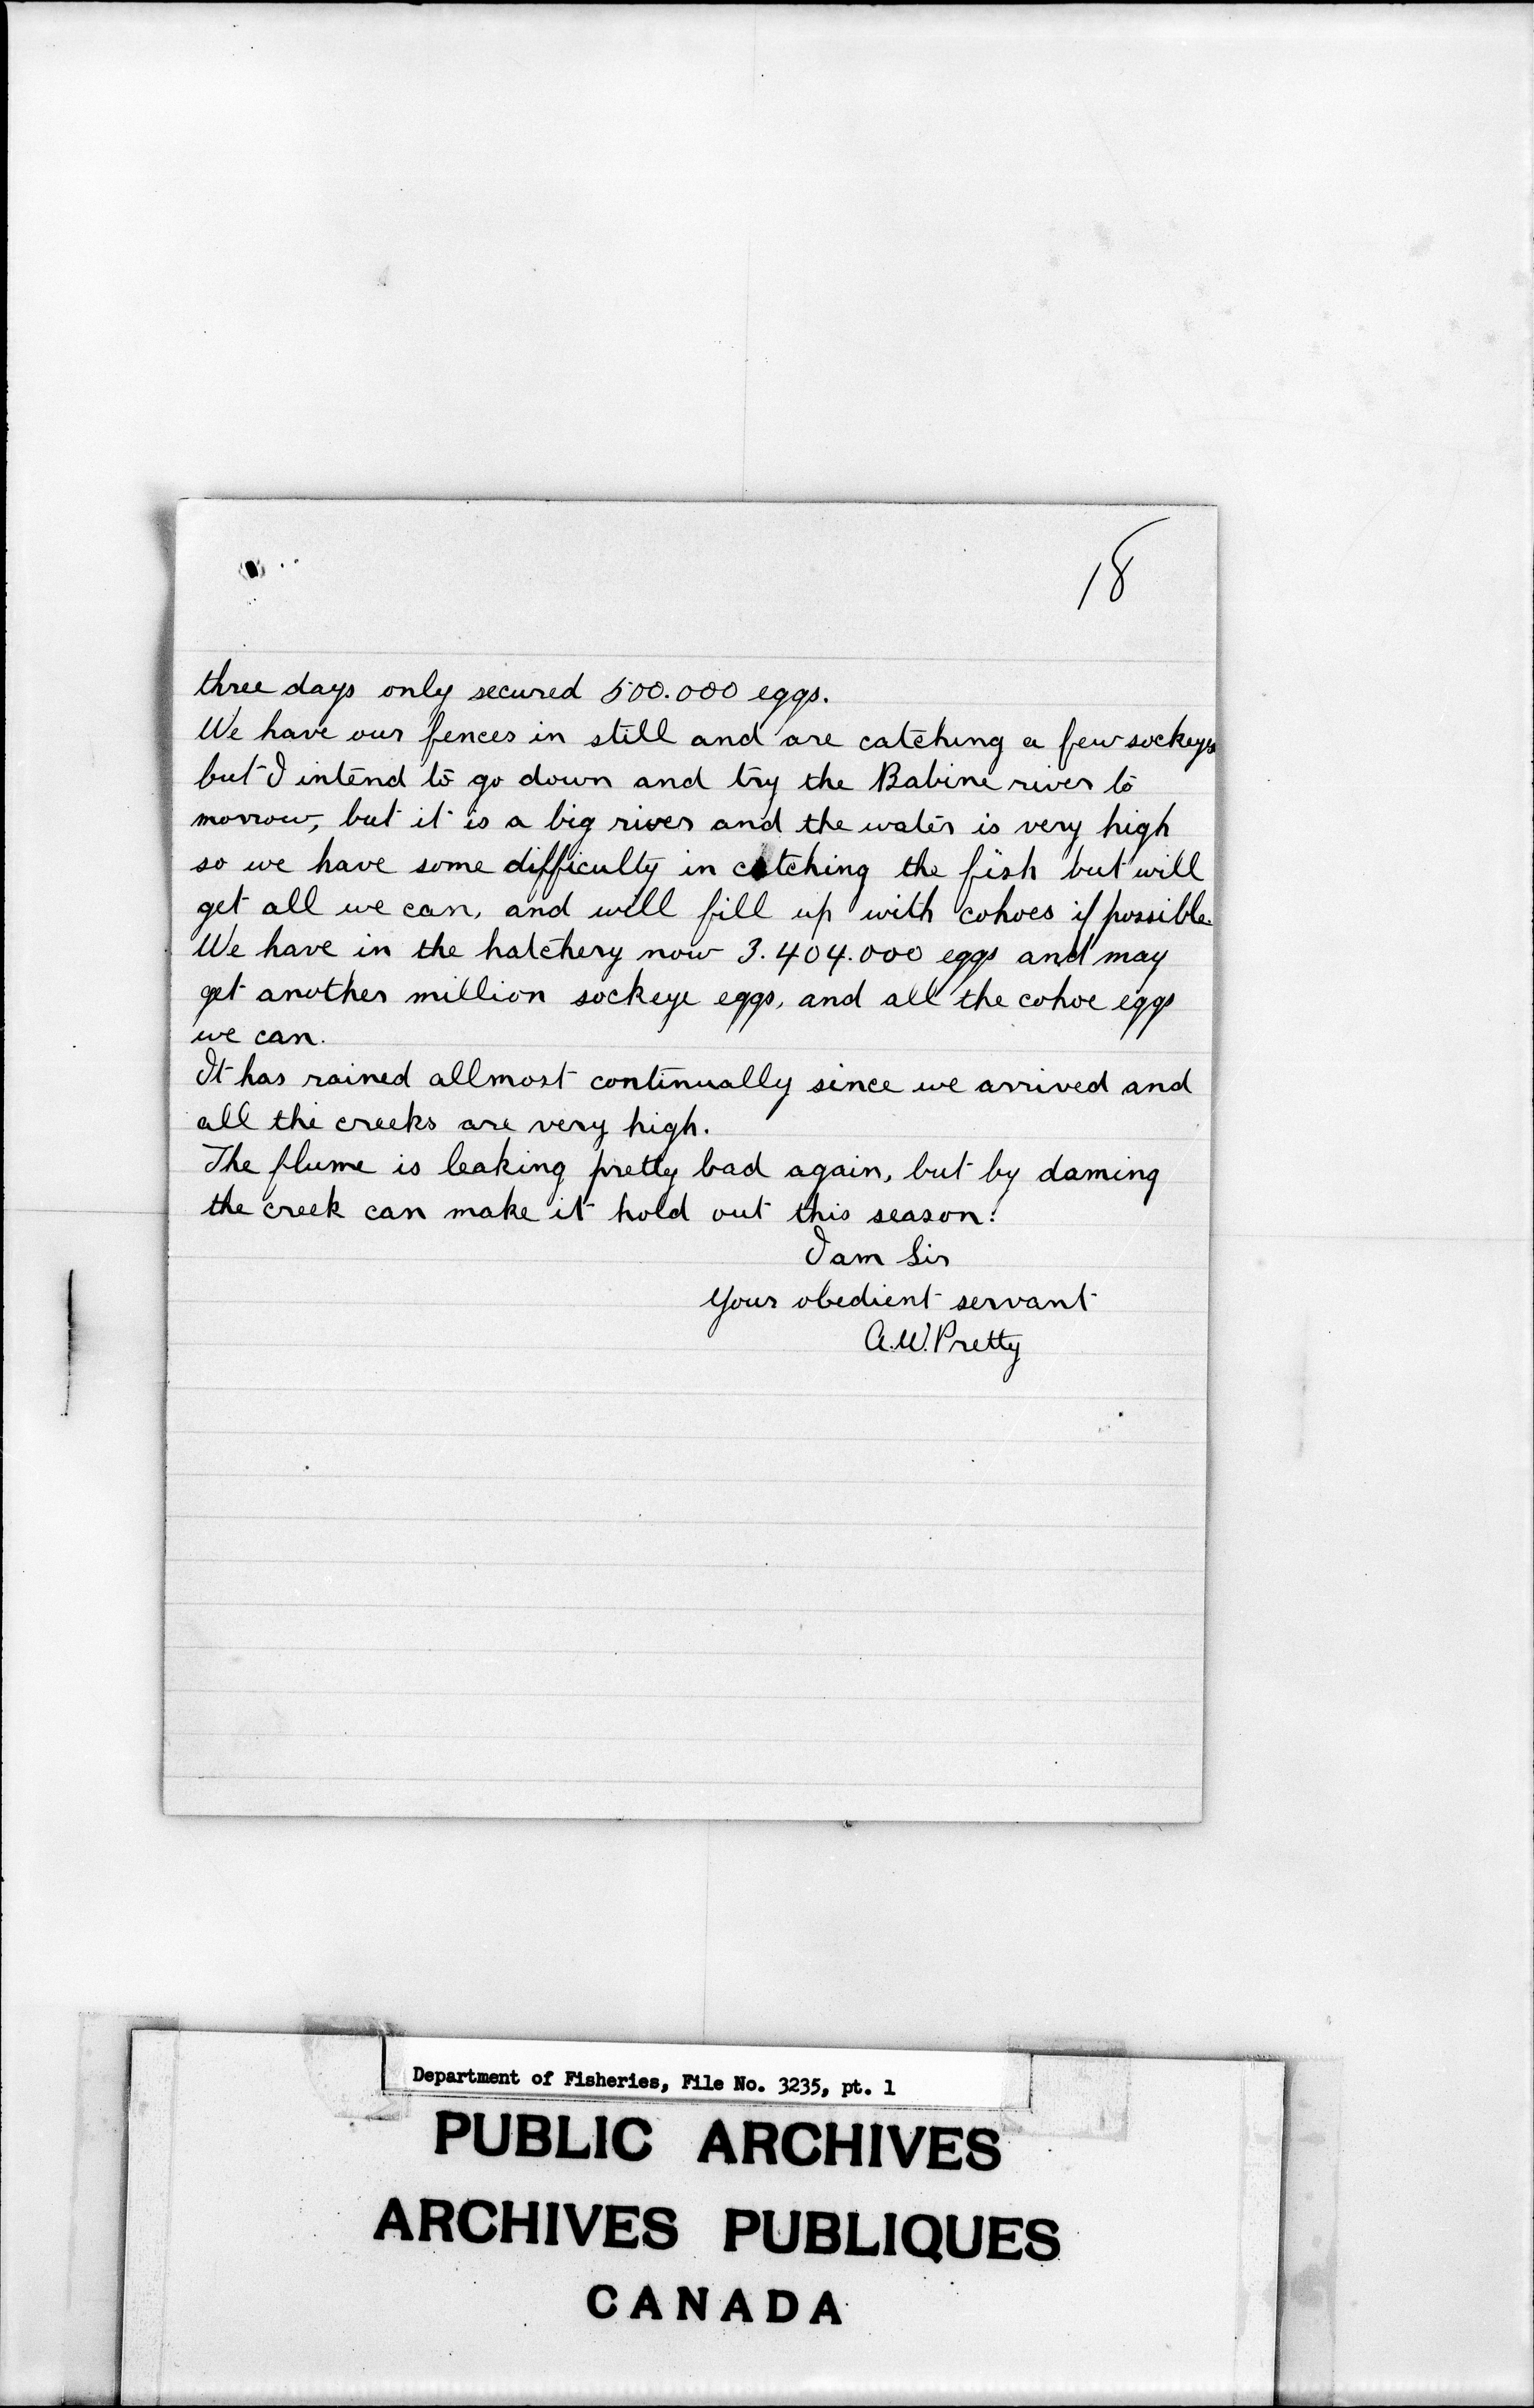 18
three days only secured 500.000 eggs.
We have our fences in still and are catching a few sockeys
but I intend to go down and try the Babine river to
morrow, but it is a big river and the water is very high
so we have some difficulty in catching the fish but will
get all we can, and will fill up with cohoes if possible.
We have in the hatchery now 3.404.000 eggs and may
get another million sockeye eggs, and all the cohoe eggs
we can.
It has rained allmost continually since we arrived and
all the creeks are very high.
The flume is leaking pretty bad again, but by daming
the creek can make it hold out this season.
I am Sir
Your obedient servant
A.W. Pretty
Department of Fisheries, File No. 3235, pt. 1
PUBLIC ARCHIVES
ARCHIVES PUBLIQUES
CANADA